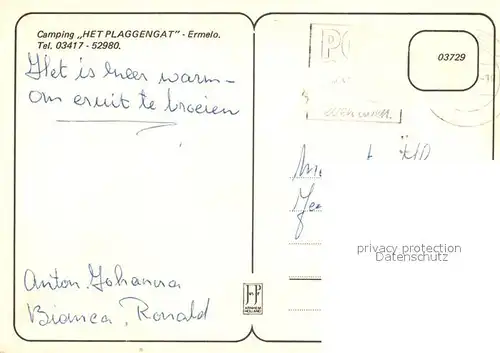 Camping „HET PLAGGENGAT" - Ermelo.
Tel. 03417 - 52980.
Het is meer warm -
om eruit te broeien
Anton. Johanna
Bianca, Ronald
03729
privacy protection
Datenschutz